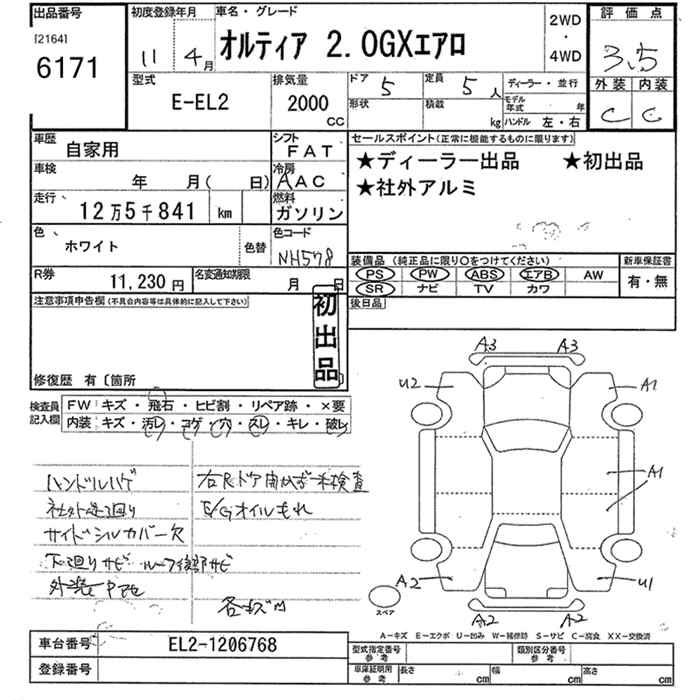 出品番号
[2164]
6171
初度登録年月
11 4月
車名・グレード
オルティア 2.0GXエアロ
2WD
・
4WD
評価点
3.5
外装 内装
C C
型式
E-EL2
排気量
2000
CC
ドア 5
形状
定員 5人
積載 kg
ディーラー・並行
モデル年式 年
ハンドル 左・右
車歴
自家用
シフト
FAT
車検
年 月( 日)
冷房
AAC
走行
12万5千841 km
燃料
ガソリン
色
ホワイト
色替
色コード
NH578
R券
11,230円
名変通知期限
月 日
セールスポイント(正常に機能するものに限ります)
★ディーラー出品 ★初出品
★社外アルミ
装備品 (純正品に限り○をつけてください)
PS PW ABS エアB AW
SR ナビ TV カワ
新車保証書
有・無
後日品
注意事項申告欄(不具合内容等は具体的に記入して下さい)
初出品
修復歴 有〔箇所
検査員記入欄
FW キズ・飛石・ヒビ割・リペア跡・×要
内装 キズ・汚レ・コゲ・穴・スレ・キレ・破レ
ハンドルハゲ
サイドシルカバー欠
下廻りサビ ルーフ後部サビ
右Rドア開かず未検査
E/Gオイルもれ
各キズ凹
A3 A3
U2 A1
A1
A2 U1
A2 A2
スペア
A−キズ E−エクボ U−凹み W−補修跡 S−サビ C−腐食 XX−交換済
車台番号
EL2-1206768
登録番号
型式指定番号
参考
類別区分番号
参考
車庫証明用
参考
長さ cm
幅 cm
高さ cm